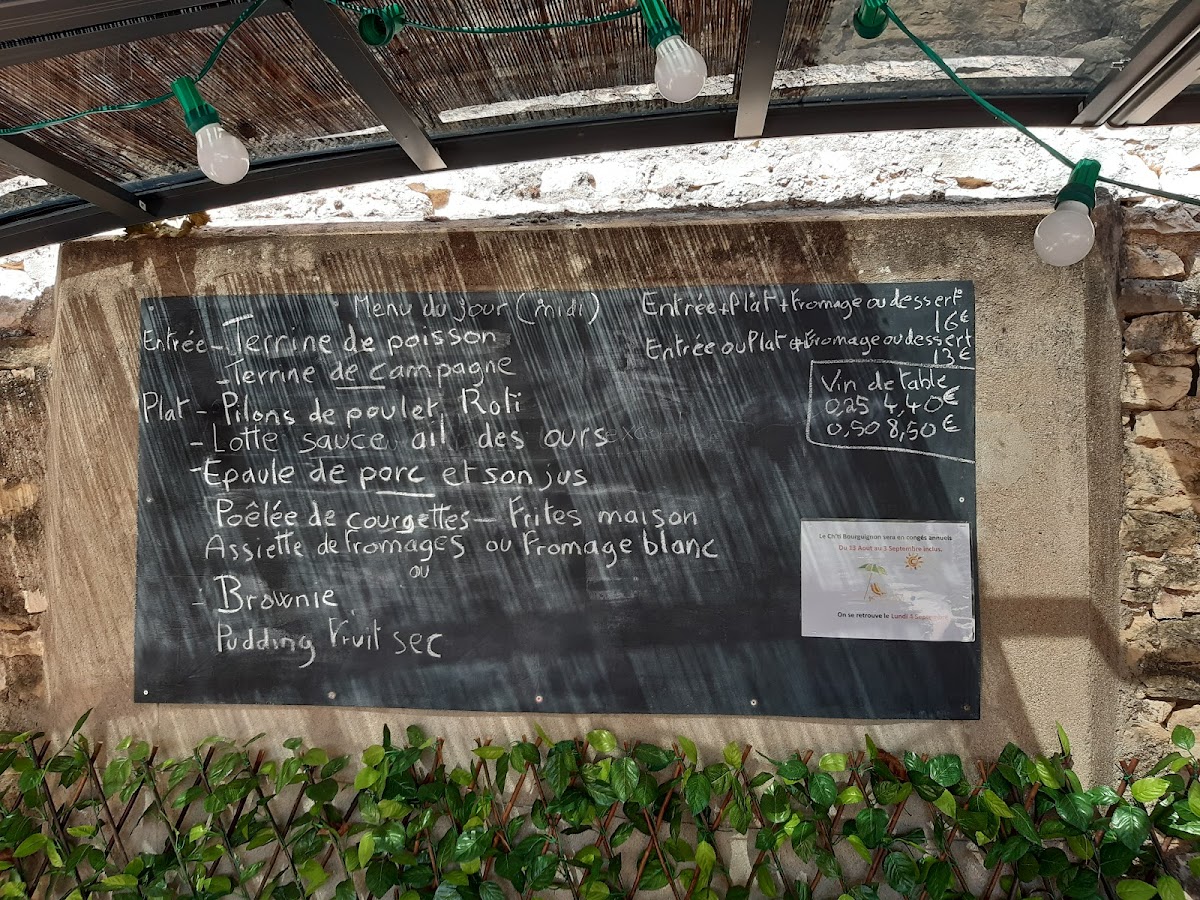 Menu du jour (midi)
Entrée - Terrine de poisson
- Terrine de campagne
Plat - Pilons de poulet Roti
- Lotte sauce ail des ours
- Epaule de porc et son jus
Poêlée de courgettes - Frites maison
Assiette de fromages ou Fromage blanc
ou
- Brownie
Pudding Fruit sec
Entrée + Plat + Fromage ou dessert
16€
Entrée ou Plat + Fromage ou dessert
13€
Vin de table
0,25 4,40€
0,50 8,50€
Le Ch'ti Bourguignon sera en congés annuels
Du 13 Aout au 3 Septembre inclus.
On se retrouve le Lundi 4 Septembre